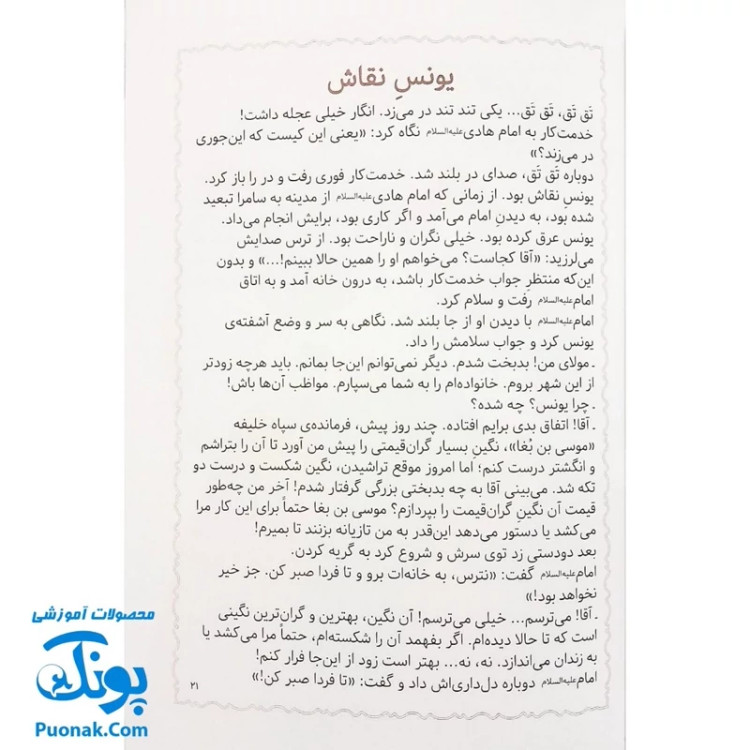 یونسِ نقاش
تَق تَق، تَق تَق... یکی تند تند در می‌زد. انگار خیلی عجله داشت!
خدمت‌کار به امام هادی علیه‌السلام نگاه کرد: «یعنی این کیست که این‌جوری
در می‌زند؟»
دوباره تَق تَق، صدای در بلند شد. خدمت‌کار فوری رفت و در را باز کرد.
یونسِ نقاش بود. از زمانی که امام هادی علیه‌السلام از مدینه به سامرا تبعید
شده بود، به دیدنِ امام می‌آمد و اگر کاری بود، برایش انجام می‌داد.
یونس عرق کرده بود. خیلی نگران و ناراحت بود. از ترس صدایش
می‌لرزید: «آقا کجاست؟ می‌خواهم او را همین حالا ببینم!...» و بدون
این‌که منتظرِ جواب خدمت‌کار باشد، به درون خانه آمد و به اتاق
امام علیه‌السلام رفت و سلام کرد.
امام علیه‌السلام با دیدن او از جا بلند شد. نگاهی به سر و وضع آشفته‌ی
یونس کرد و جواب سلامش را داد.
ـ مولای من! بدبخت شدم. دیگر نمی‌توانم این‌جا بمانم. باید هرچه زودتر
از این شهر بروم. خانواده‌ام را به شما می‌سپارم. مواظب آن‌ها باش!
ـ چرا یونس؟ چه شده؟
ـ آقا! اتفاق بدی برایم افتاده. چند روز پیش، فرمانده‌ی سپاه خلیفه
«موسی بن بُغا»، نگینِ بسیار گران‌قیمتی را پیش من آورد تا آن را بتراشم
و انگشتر درست کنم؛ اما امروز موقع تراشیدن، نگین شکست و درست دو
تکه شد. می‌بینی آقا به چه بدبختی بزرگی گرفتار شدم! آخر من چه‌طور
قیمت آن نگینِ گران‌قیمت را بپردازم؟ موسی بن بغا حتماً برای این کار مرا
می‌کشد یا دستور می‌دهد این‌قدر به من تازیانه بزنند تا بمیرم!
بعد دودستی زد توی سرش و شروع کرد به گریه کردن.
امام علیه‌السلام گفت: «نترس، به خانه‌ات برو و تا فردا صبر کن. جز خیر
نخواهد بود!»
ـ آقا! می‌ترسم... خیلی می‌ترسم! آن نگین، بهترین و گران‌ترین نگینی
است که تا حالا دیده‌ام. اگر بفهمد آن را شکسته‌ام، حتماً مرا می‌کشد یا
به زندان می‌اندازد. نه، نه... بهتر است زود از این‌جا فرار کنم!
امام علیه‌السلام دوباره دل‌داری‌اش داد و گفت: «تا فردا صبر کن!»
۲۱
محصولات آموزشی
پونک
Puonak.Com